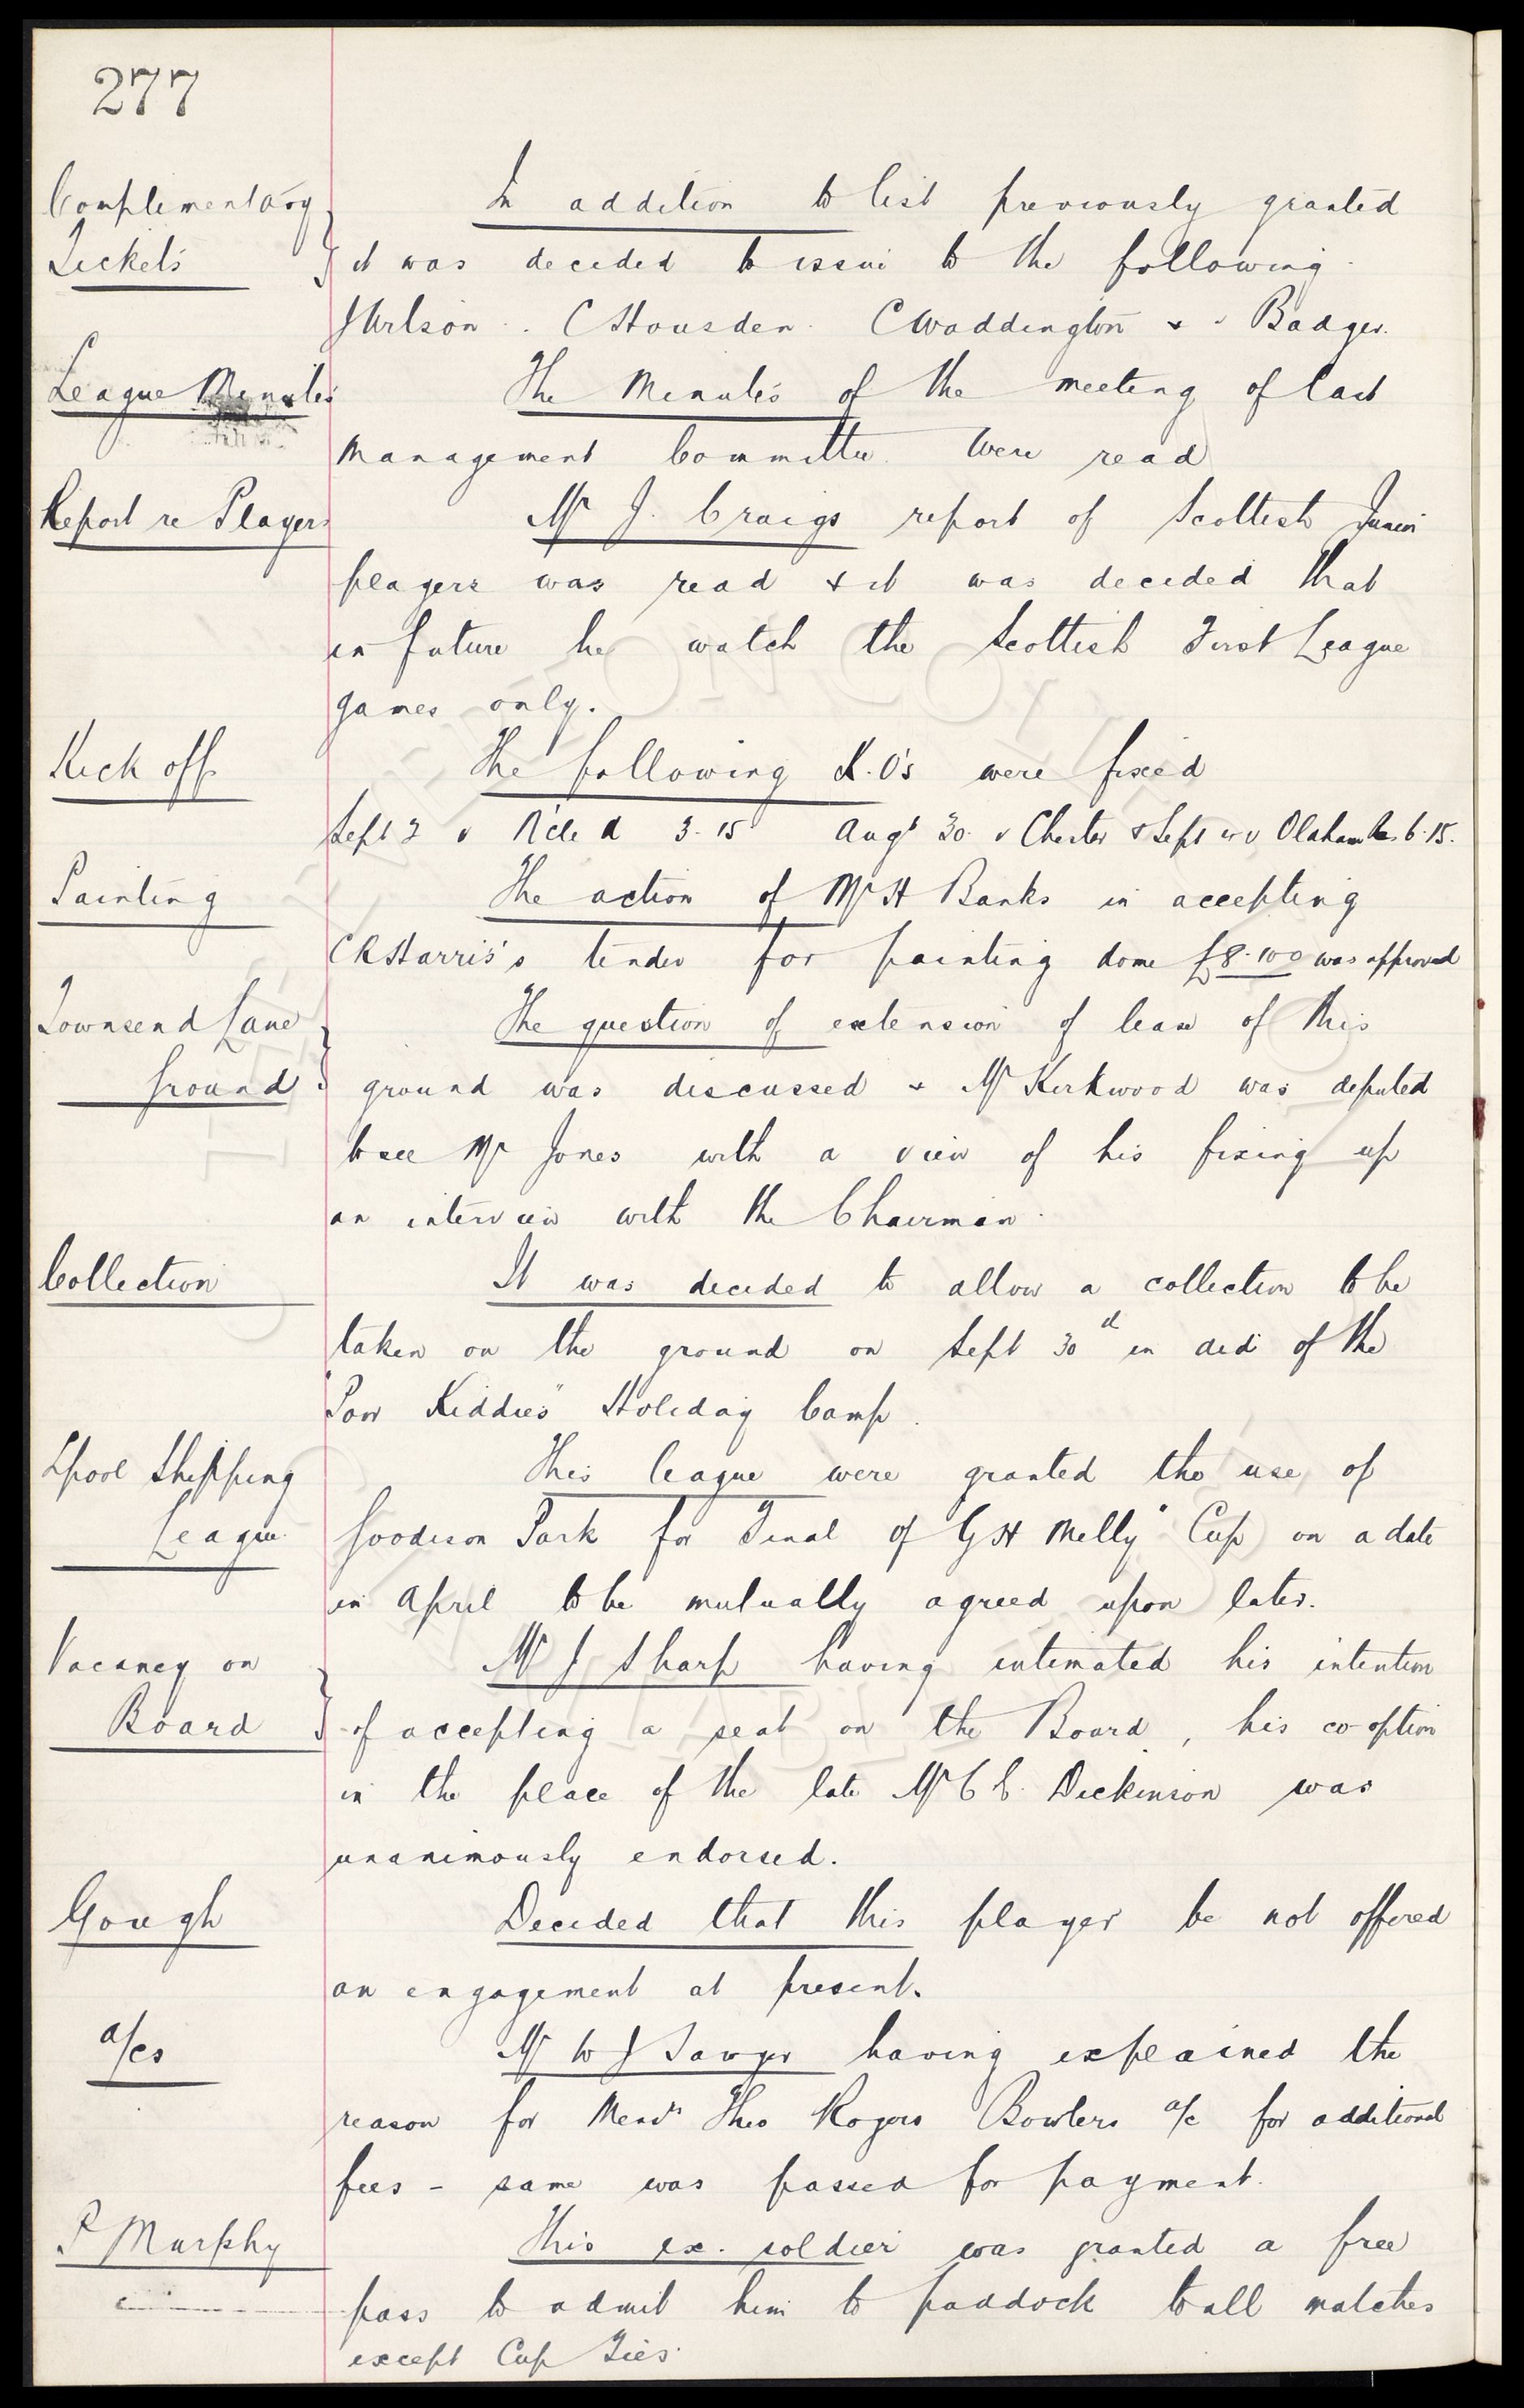 277
Complimentary
Tickets
In addition to list previously granted
it was decided to issue to the following
J Wilson . C Housden . C Waddington + " Badger.
League Minutes
The Minutes of the meeting of last
Management Committee were read
Report re Players
Mr J. Craigs report of Scottish Junior
players was read + it was decided that
in future he watch the Scottish First League
games only.
Kick off
The following K.O's were fixed
Sept 2 v 3.15 Augt 30 v Chester & Sept v Oldham 6.15.
Painting
The action of Mr H Banks in accepting
C R Harris's tender for painting dome £8.10.0 was approved
Townsend Lane
Ground
The question of extension of lease of this
ground was discussed + Mr Kirkwood was deputed
to see Mr Jones with a view of his fixing up
an interview with the Chairman.
Collection
It was decided to allow a collection to be
taken on the ground on Sept 30th in aid of the
"Poor Kiddies" Holiday Camp.
Lpool Shipping
League
This league were granted the use of
Goodison Park for Final of "G H Melly" Cup on a date
in April to be mutually agreed upon later.
Vacancy on
Board
Mr J Sharp having intimated his intention
of accepting a seat on the Board, his co-option
in the place of the late Mr C C. Dickinson was
unanimously endorsed.
Gough
Decided that this player be not offered
an engagement at present.
a/cs
Mr W J Sawyer having explained the
reason for Theo Rogers Bowlers a/c for additional
fees - same was passed for payment.
P Murphy
This ex. soldier was granted a free
pass to admit him to paddock to all matches
except Cup Ties.